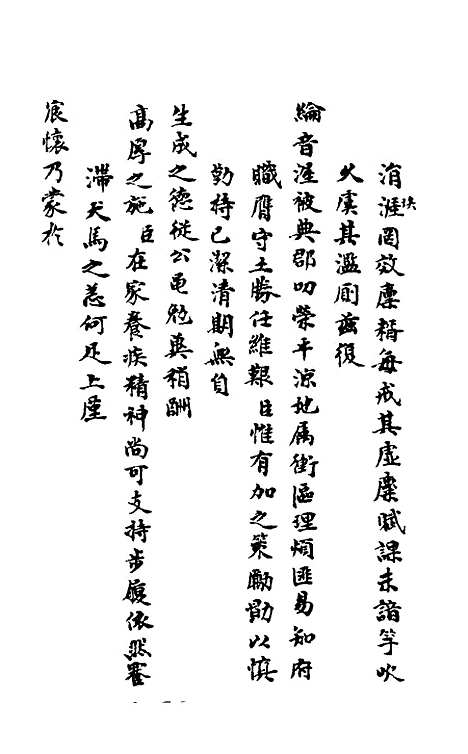 涓涯罔效廩糈每戒其虛糜賦課未諳竽吹
久虞其濫廁茲復
綸音渥被典郡叨榮平涼地屬衝區理煩匪易知府
職膺守土勝任維艱臣惟有加之策勵勖以慎
勤持己潔清期無負
生成之德從公黽勉冀稍酬
高厚之施臣在家養疾精神尚可支持步履依然蹇
滯犬馬之恙何足上廑
宸懷乃蒙於